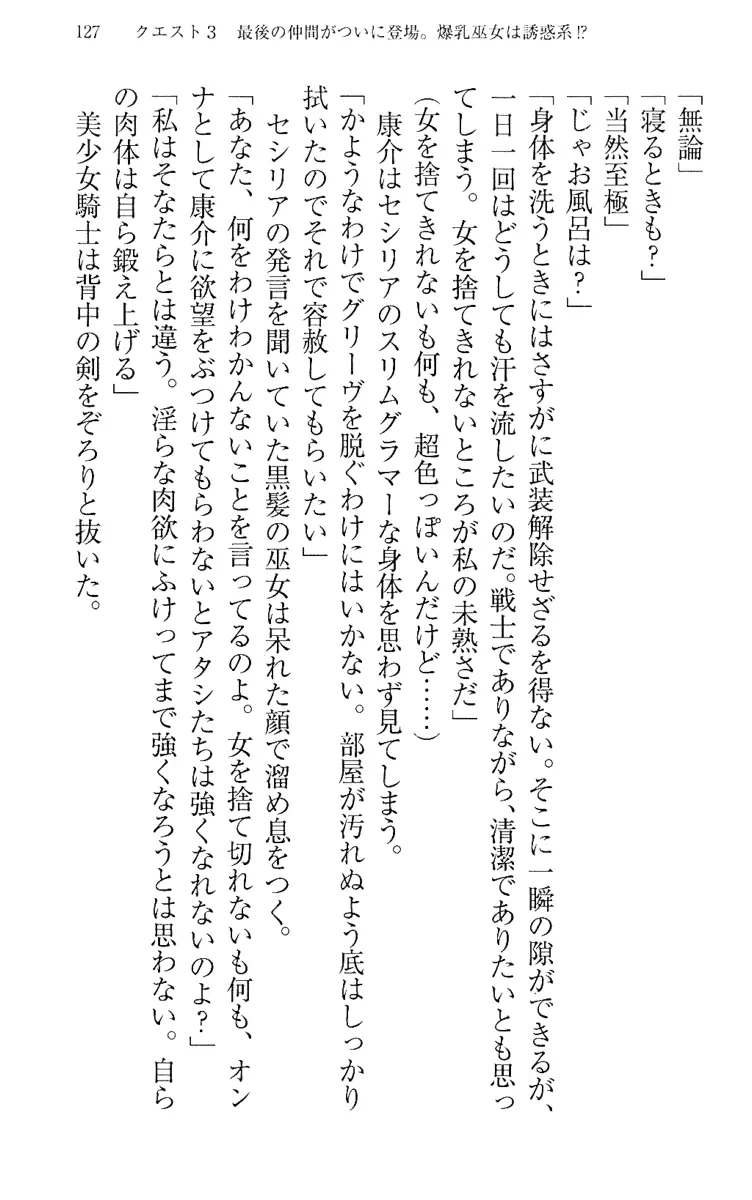 127　クエスト３　最後の仲間がついに登場。爆乳巫女は誘惑系!?
「無論」
「寝るときも？」
「当然至極」
「じゃお風呂は？」
「身体を洗うときにはさすがに武装解除せざるを得ない。そこに一瞬の隙ができるが、
一日一回はどうしても汗を流したいのだ。戦士でありながら、清潔でありたいとも思っ
てしまう。女を捨てきれないところが私の未熟さだ」
（女を捨てきれないも何も、超色っぽいんだけど……）
　康介はセシリアのスリムグラマーな身体を思わず見てしまう。
「かようなわけでグリーヴを脱ぐわけにはいかない。部屋が汚れぬよう底はしっかり
拭いたのでそれで容赦してもらいたい」
　セシリアの発言を聞いていた黒髪の巫女は呆れた顔で溜め息をつく。
「あなた、何をわけわかんないことを言ってるのよ。女を捨て切れないも何も、オン
ナとして康介に欲望をぶつけてもらわないとアタシたちは強くなれないのよ？」
「私はそなたらとは違う。淫らな肉欲にふけってまで強くなろうとは思わない。自ら
の肉体は自ら鍛え上げる」
　美少女騎士は背中の剣をぞろりと抜いた。